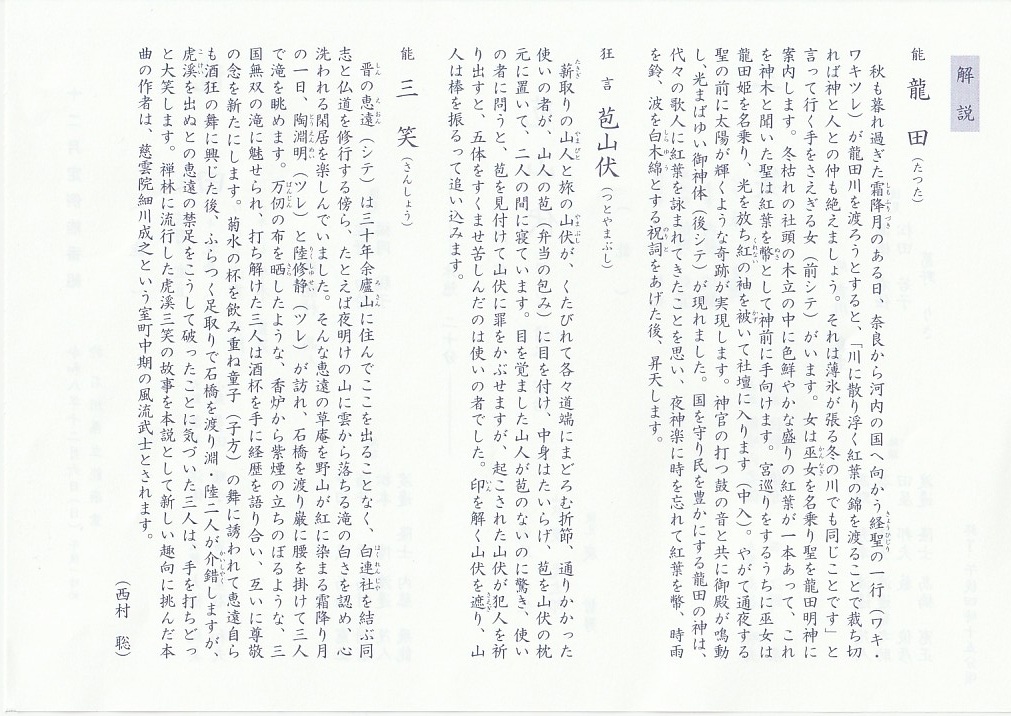 解説
能 龍田（たつた）
秋も暮れ過ぎた霜降月のある日、奈良から河内の国へ向かう経聖の一行（ワキ・
ワキツレ）が龍田川を渡ろうとすると、「川に散り浮く紅葉の錦を渡ることで裁ち切
れば神と人との仲も絶えましょう。それは薄氷が張る冬の川でも同じことです」と
言って行く手をさえぎる女（前シテ）がいます。女は巫女を名乗り聖を龍田明神に
案内します。冬枯れの社頭の木立の中に色鮮やかな盛りの紅葉が一本あって、これ
を神木と聞いた聖は紅葉を幣として神前に手向けます。宮巡りをするうちに巫女は
龍田姫を名乗り、光を放ち紅の袖を被いて社壇に入ります（中入）。やがて通夜する
聖の前に太陽が輝くような奇跡が実現します。神官の打つ鼓の音と共に御殿が鳴動
し、光まばゆい御神体（後シテ）が現れました。国を守り民を豊かにする龍田の神は、
代々の歌人に紅葉を詠まれてきたことを思い、夜神楽に時を忘れて紅葉を幣、時雨
を鈴、波を白木綿とする祝詞をあげた後、昇天します。
狂言 苞山伏（つとやまぶし）
薪取りの山人と旅の山伏が、くたびれて各々道端にまどろむ折節、通りかかった
使いの者が、山人の苞（弁当の包み）に目を付け、中身はたいらげ、苞を山伏の枕
元に置いて、二人の間に寝ています。目を覚ました山人が苞のないのに驚き、使い
の者に問うと、苞を見付けて山伏に罪をかぶせますが、起こされた山伏が犯人を祈
り出すと、五体をすくませ苦しんだのは使いの者でした。印を解く山伏を遮り、山
人は棒を振るって追い込みます。
能 三笑（さんしょう）
晋の恵遠（シテ）は三十年余廬山に住んでここを出ることなく、白蓮社を結ぶ同
志と仏道を修行する傍ら、たとえば夜明けの山に雲から落ちる滝の白さを認め、心
洗われる閑居を楽しんでいました。そんな恵遠の草庵を野山が紅に染まる霜降り月
の一日、陶淵明（ツレ）と陸修静（ツレ）が訪れ、石橋を渡り巌に腰を掛けて三人
で滝を眺めます。万仞の布を晒したような、香炉から紫煙の立ちのぼるような、三
国無双の滝に魅せられ、打ち解けた三人は酒杯を手に経歴を語り合い、互いに尊敬
の念を新たにします。菊水の杯を飲み重ね童子（子方）の舞に誘われて恵遠自ら
も酒狂の舞に興じた後、ふらつく足取りで石橋を渡り淵・陸二人が介錯しますが、
虎渓を出ぬとの恵遠の禁足をこうして破ったことに気づいた三人は、手を打ちどっ
と大笑します。禅林に流行した虎渓三笑の故事を本説として新しい趣向に挑んだ本
曲の作者は、慈雲院細川成之という室町中期の風流武士とされます。
（西村 聡）